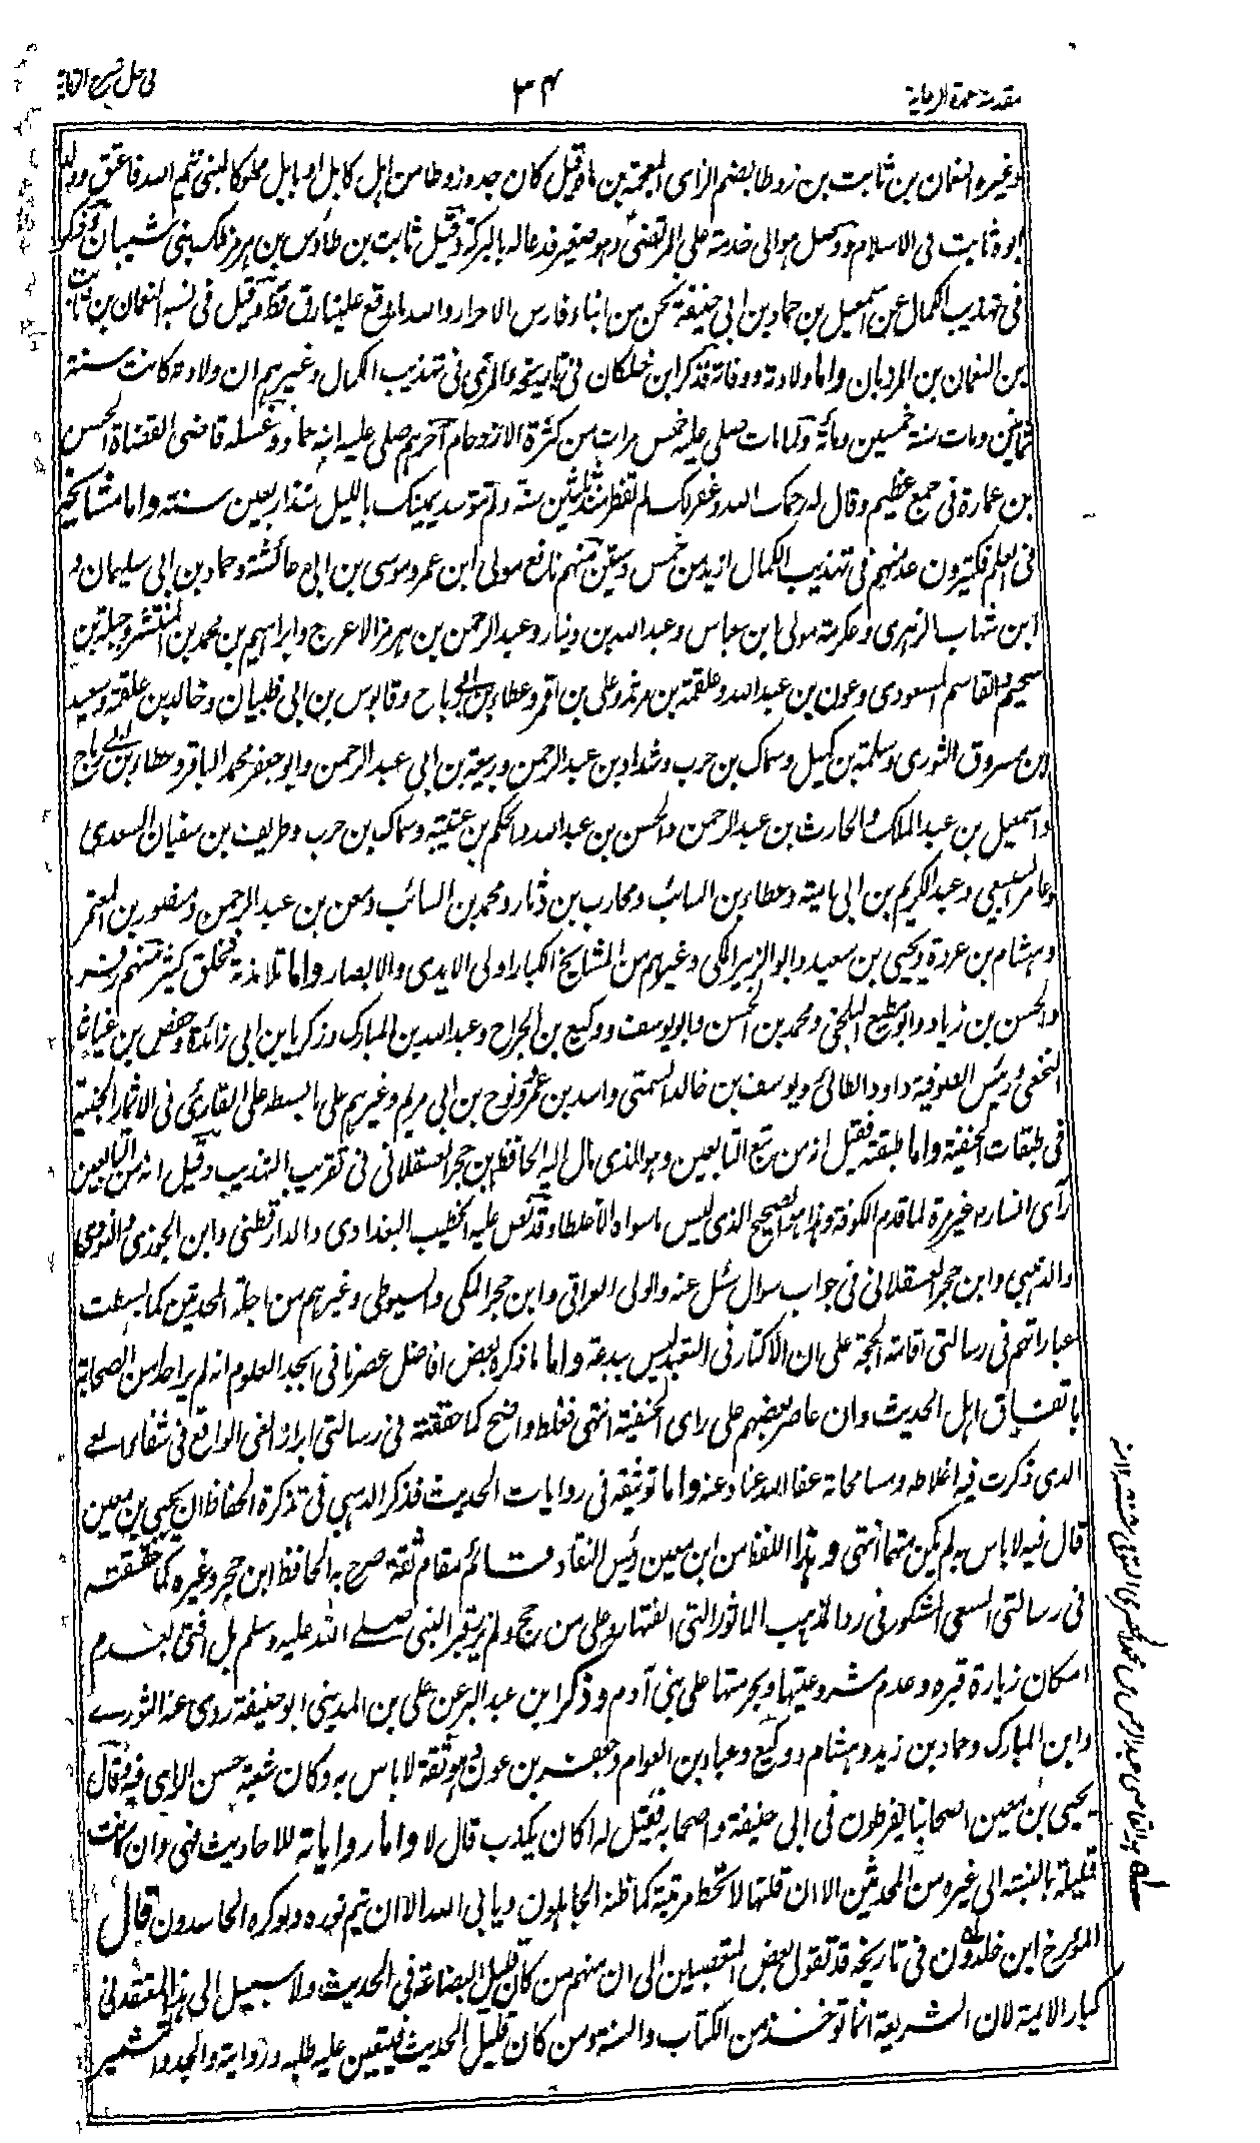 مقدمة عمدة الرعاية
٣٤
فى حل شرح الوقاية
وغيره النعمان بن ثابت بن زوطا بضم الزاى المعجمة بن ماه وقيل كان جده زوطا من اهل كابل او بابل مملوكا لبنى تيم الله فاعتق وولد
ابوه ثابت فى الاسلام ووصل هو الى خدمة على المرتضى وهو صغير فدعا له بالبركة وقيل ثابت بن طاؤس بن هرمز ملك بنى شيبان وذكر
فى تهذيب الكمال عن اسمعيل بن حماد بن ابى حنيفة نحن من ابناء فارس الاحرار والله ما وقع علينا رق قط وقيل فى نسبه النعمان بن ثابت
بن النعمان بن المرزبان واما ولادته ووفاته فذكر ابن خلكان فى تاريخه والمزى فى تهذيب الكمال وغيرهم ان ولادته كانت سنة
ثمانين ومات سنة خمسين ومائة ولما مات صلى عليه خمس مرات من كثرة الازدحام آخرهم صلى عليه ابنه حماد وغسله قاضى القضاة الحسن
بن عمارة فى جمع عظيم وقال له رحمك الله وغفر لك لم تفطر منذ ثلثين سنة ولم تتوسد يمينك بالليل منذ اربعين سنة واما مشايخه
فى العلم فكثيرون عد منهم فى تهذيب الكمال ازيد من خمس وستين منهم نافع مولى ابن عمر وموسى بن ابى عائشة وحماد بن ابى سليمان و
ابن شهاب الزهرى وعكرمة مولى ابن عباس وعبد الله بن دينار وعبد الرحمن بن هرمز الاعرج وابراهيم بن محمد بن المنتشر وجبلة بن
سحيم والقاسم المسعودى وعون بن عبد الله وعلقمة بن مرثد وعلى بن اقمر وعطاء بن ابى رباح وقابوس بن ابى ظبيان وخالد بن علقمة وسعيد
بن مسروق الثورى وسلمة بن كهيل وسماك بن حرب وشداد بن عبد الرحمن وربيعة بن ابى عبد الرحمن وابو جعفر محمد الباقر وعطاء بن ابى رباح
واسمعيل بن عبد الملك والحارث بن عبد الرحمن والحسن بن عبد الله والحكم بن عتيبة وسماك بن حرب وطريف بن سفيان السعدى
وعامر السبيعى وعبد الكريم بن ابى امية وعطاء بن السائب ومحارب بن دثار ومحمد بن السائب ومعن بن عبد الرحمن ومنصور بن المعتمر
وهشام بن عروة ويحيى بن سعيد وابو الزبير المكى وغيرهم من المشايخ الكبار اولى الايدى والابصار واما تلامذته فخلق كثير منهم زفر
والحسن بن زياد وابو مطيع البلخى ومحمد بن الحسن وابو يوسف ووكيع بن الجراح وعبد الله بن المبارك وزكريا بن ابى زائدة وحفص بن غياث
النخعى ورئيس الصوفية داود الطائى ويوسف بن خالد السمتى واسد بن عمرو ونوح بن ابى مريم وغيرهم على ما بسطه على القارى فى الاثمار الجنية
فى طبقات الحنفية واما طبقته فقيل انه من تبع التابعين وهو الذى مال اليه الحافظ بن حجر العسقلانى فى تقريب التهذيب وقيل انه من التابعين
رآى انسا رض غير مرة لما قدم الكوفة وهذا هو الصحيح الذى ليس ما سواه الا غلطا وقد نص عليه الخطيب البغدادى والدارقطنى وابن الجوزى والنووى
والذهبى وابن حجر العسقلانى فى جواب سوال سئل عنه والولى العراقى وابن حجر المكى والسيوطى وغيرهم من اجلة المحدثين كما بسطت
عباراتهم فى رسالتى اقامة الحجة على ان الاكثار فى التعبد ليس ببدعة واما ما ذكره بعض افاضل عصرنا فى ابجد العلوم انه لم ير احدا من الصحابة
باتفاق اهل الحديث وان عاصر بعضهم على راى الحنفية انتهى فغلط واضح كما حققته فى رسالتى ابراز الغى الواقع فى شفاء العى
الذى ذكرت فيه اغلاطه ومسامحاته عفا الله عنا وعنه واما توثيقه فى روايات الحديث فذكر الذهبى فى تذكرة الحفاظ ان يحيى بن معين
قال فيه لا باس به لم يكن متهما انتهى وهذا اللفظ من ابن معين رئيس النقاد قائم مقام ثقة صرح به الحافظ ابن حجر وغيره كما حققته
فى رسالتى السعى المشكور فى رد المذهب الماثور التى الفتها ردا على من حج ولم يزر قبر النبى صلى الله عليه وسلم بل افتى بعدم
امكان زيارة قبره وعدم مشروعيتها وبحرمتها على بنى آدم وذكر ابن عبد البر عن على بن المدينى ابو حنيفة روى عنه الثورى
وابن المبارك وحماد بن زيد وهشام ووكيع وعباد بن العوام وجعفر بن عون وهو ثقة لا باس به وكان شعبة حسن الراى فيه وقال
يحيى بن معين اصحابنا يفرطون فى ابى حنيفة واصحابه فقيل له اكان يكذب قال لا واما رواياته للاحاديث فهى وان كانت
قليلة بالنسبة الى غيره من المحدثين الا ان قلتها لا تحط مرتبته كما ظنه الجاهلون ويابى الله الا ان يتم نوره ولو كره الحاسدون قال
المؤرخ ابن خلدون فى تاريخه قد تقول بعض المتعصبين الى ان منهم من كان قليل البضاعة فى الحديث ولا سبيل الى هذا المعتقد فى
كبار الائمة لان الشريعة انما توخذ من الكتاب والسنة ومن كان قليل الحديث فيتعين عليه طلبه وروايته والجد والتشمير